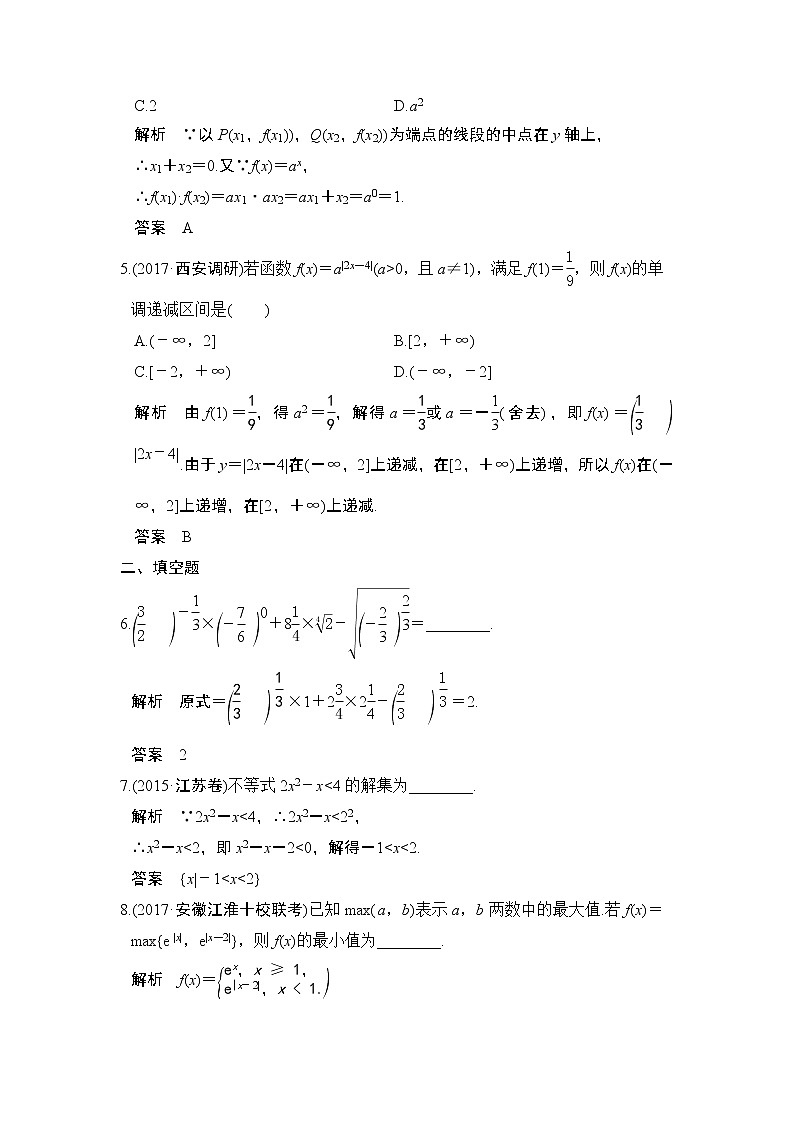 C.2 D.a²
解析 ∵以P(x₁，f(x₁))，Q(x₂，f(x₂))为端点的线段的中点在y轴上，
∴x₁＋x₂＝0.又∵f(x)＝aˣ，
∴f(x₁)·f(x₂)＝ax₁·ax₂＝ax₁＋x₂＝a⁰＝1.
答案 A
5.(2017·西安调研)若函数f(x)＝a^|2x－4|(a>0，且a≠1)，满足f(1)＝1/9，则f(x)的单
调递减区间是( )
A.(－∞，2] B.[2，＋∞)
C.[－2，＋∞) D.(－∞，－2]
解析 由f(1)＝1/9，得a²＝1/9，解得a＝1/3或a＝－1/3(舍去)，即f(x)＝(1/3)
|2x－4|.由于y＝|2x－4|在(－∞，2]上递减，在[2，＋∞)上递增，所以f(x)在(－
∞，2]上递增，在[2，＋∞)上递减.
答案 B
二、填空题
6.(3/2)－1/3×(－7/6)⁰＋8 1/4×∜2－√((－2/3)2/3)＝________.
解析 原式＝(2/3)1/3×1＋2 3/4×2 1/4－(2/3)1/3＝2.
答案 2
7.(2015·江苏卷)不等式2x²－x<4的解集为________.
解析 ∵2x²－x<4，∴2x²－x<2²，
∴x²－x<2，即x²－x－2<0，解得－1<x<2.
答案 {x|－1<x<2}
8.(2017·安徽江淮十校联考)已知max(a，b)表示a，b两数中的最大值.若f(x)＝
max{e^|x|，e^|x－2|}，则f(x)的最小值为________.
解析 f(x)＝{eˣ，x≥1，
e^|x－2|，x<1.)